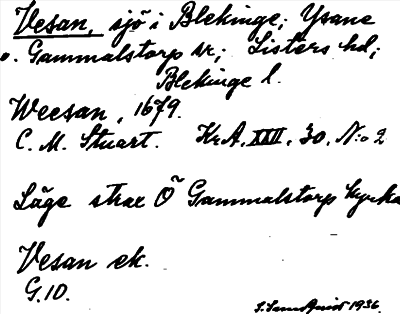 Vesan, sjö i Blekinge; Ysane
o. Gammalstorp sk; Listers hd;
Blekinge l.
Weesan, 1679.
C. M. Stuart. Kr.A. XXII, 30, N:o 2
Läge strax Ö Gammalstorp kyrka
Vesan ek.
G.10.
1936.